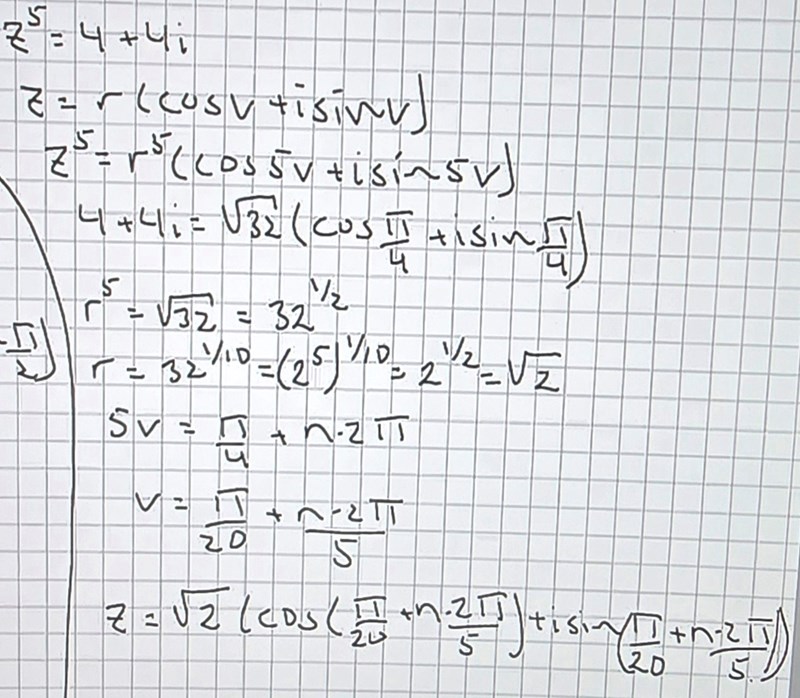 z⁵ = 4 + 4i
z = r (cos v + i sin v)
z⁵ = r⁵ (cos 5v + i sin 5v)
4 + 4i = √32 (cos π/4 + i sin π/4)
r⁵ = √32 = 32^1/2
-π/2)
r = 32^1/10 = (2⁵)^1/10 = 2^1/2 = √2
5v = π/4 + n·2π
v = π/20 + n·2π/5
z = √2 (cos(π/20 + n·2π/5) + i sin(π/20 + n·2π/5))